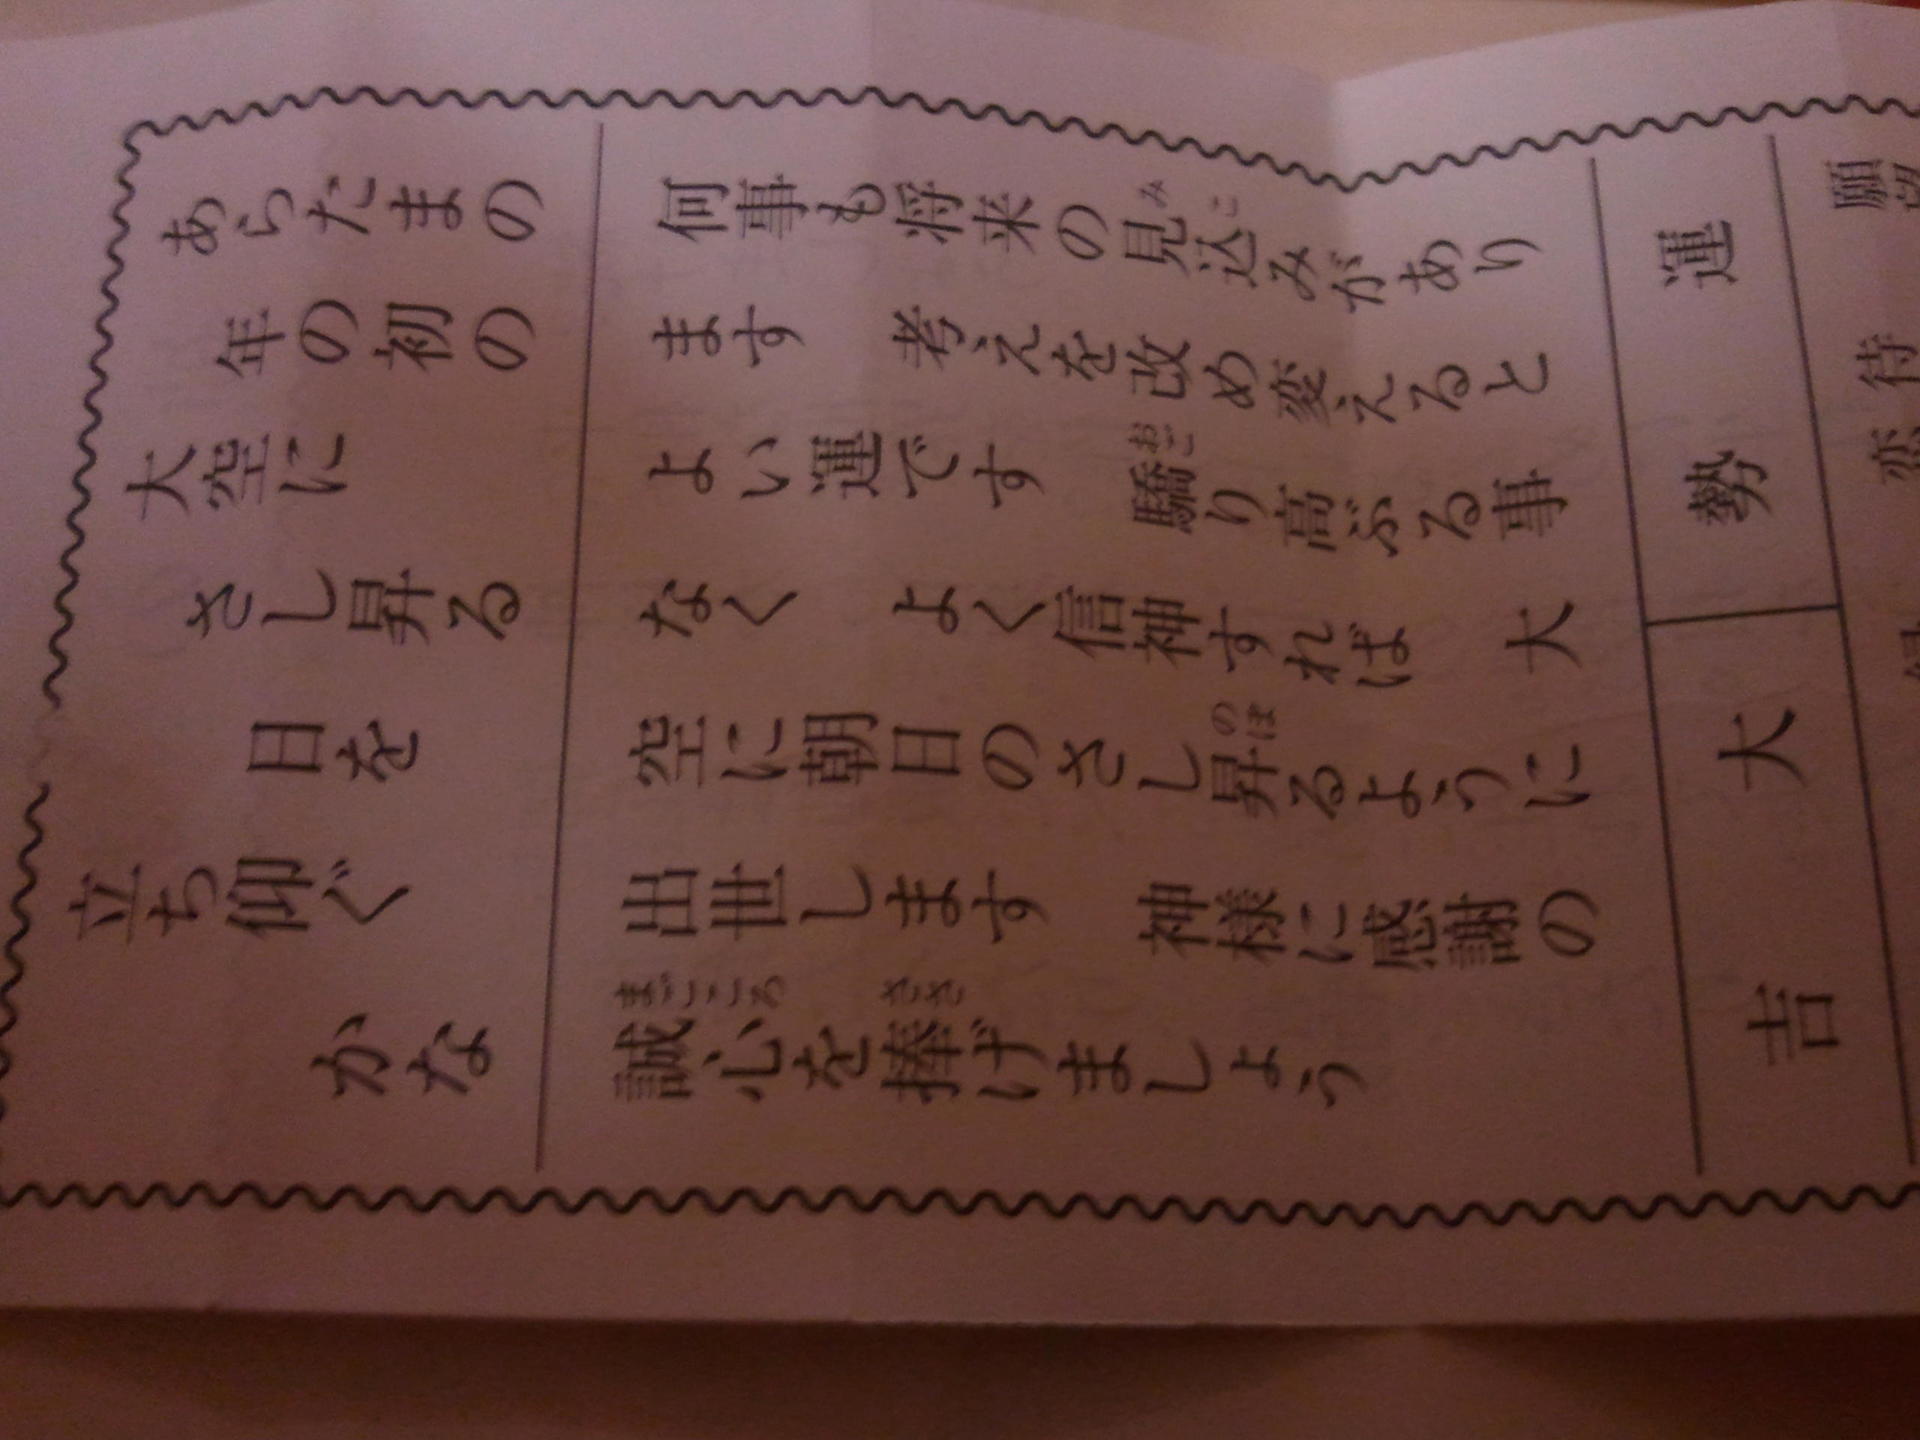 あらたまの
年の初の
大空に
さし昇る
日を
立ち仰ぐ
かな
何事も将来の見込みがあり
ます　考えを改め変えると
よい運です　驕り高ぶる事
なく　よく信神すれば　大
空に朝日のさし昇るように
出世します　神様に感謝の
誠心を捧げましょう
運勢
大吉
願望
待